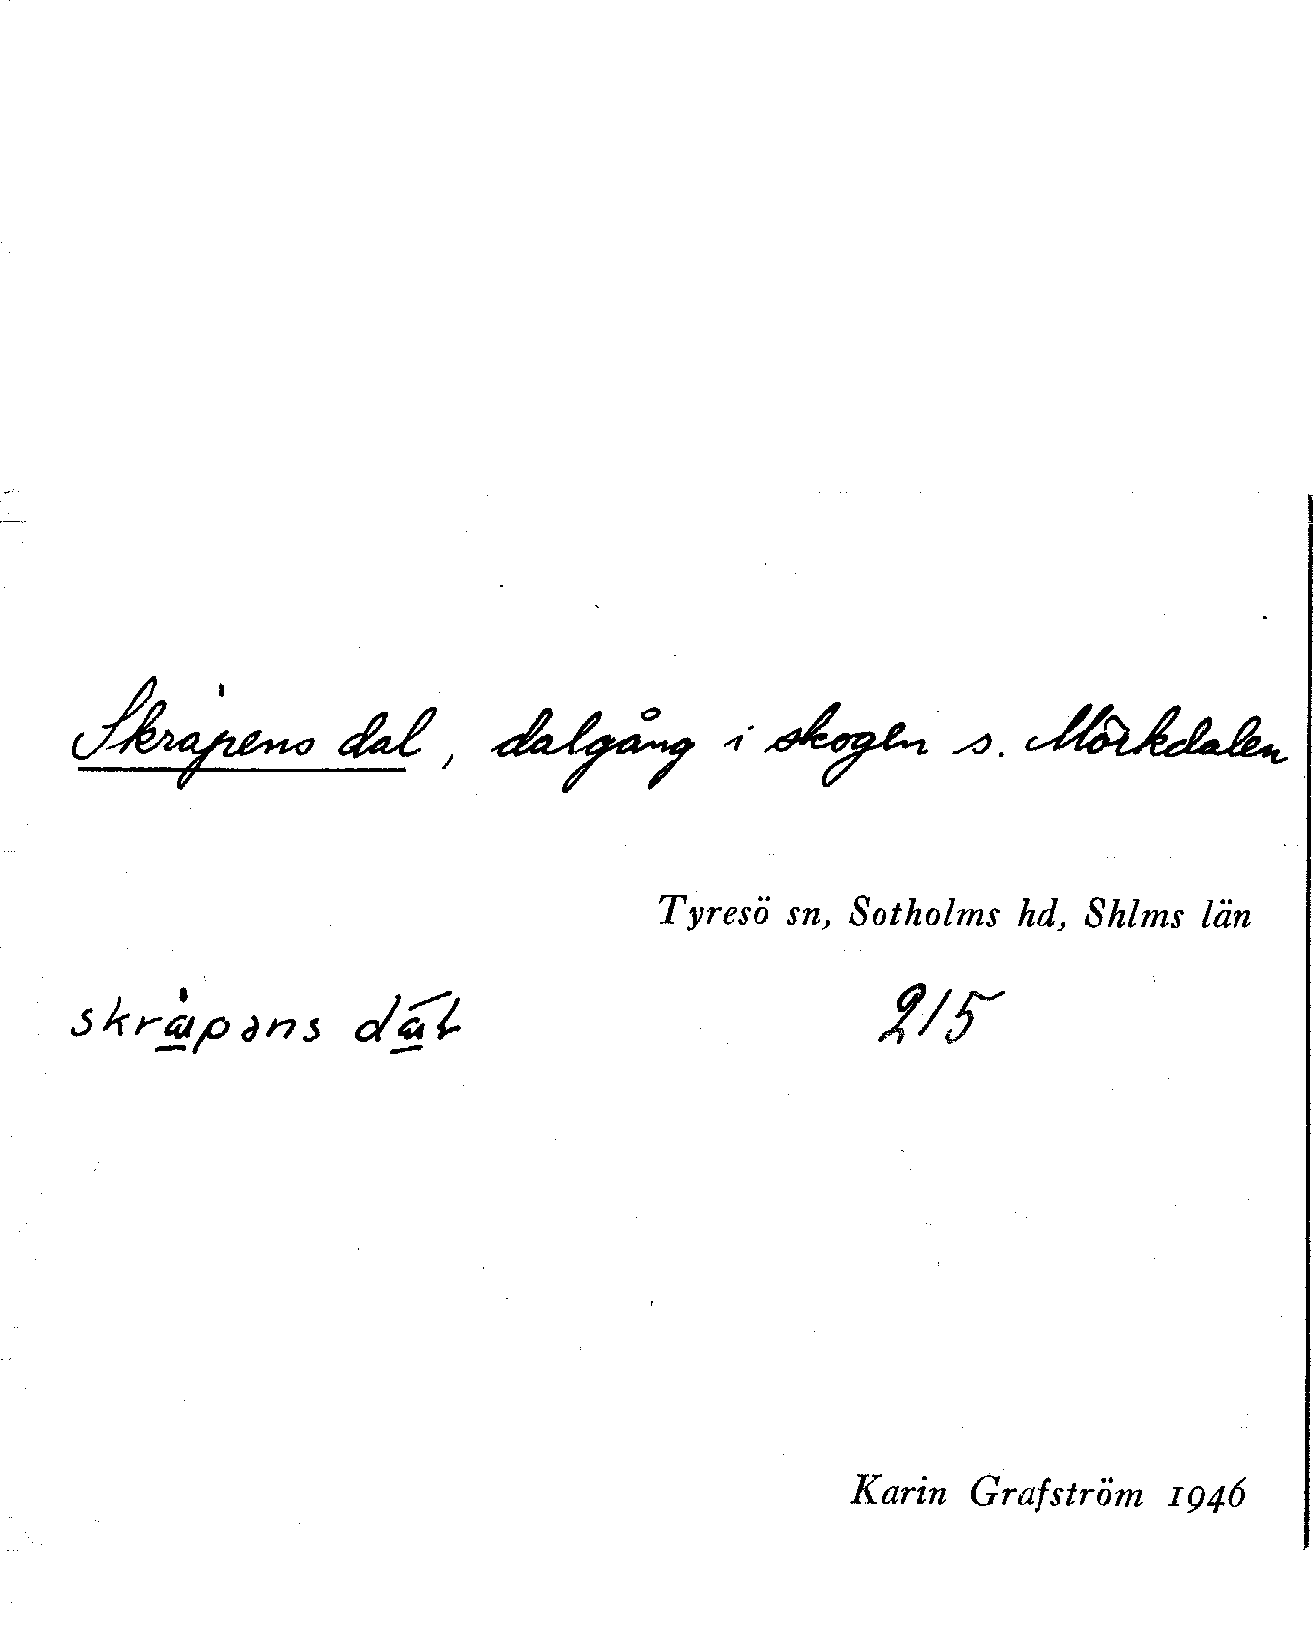 Skrapens dal, dalgång i skogen s. Mörkdalen
Tyresö sn, Sotholms hd, Shlms län
215
Karin Grafström 1946